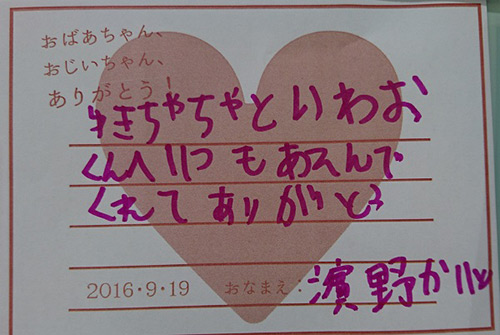 おばあちゃん、
おじいちゃん、
ありがとう!
ゆきちゃちゃといわお
くんへいつもあそんで
くれてありがとう
2016・9・19 おなまえ: 濱野かいと